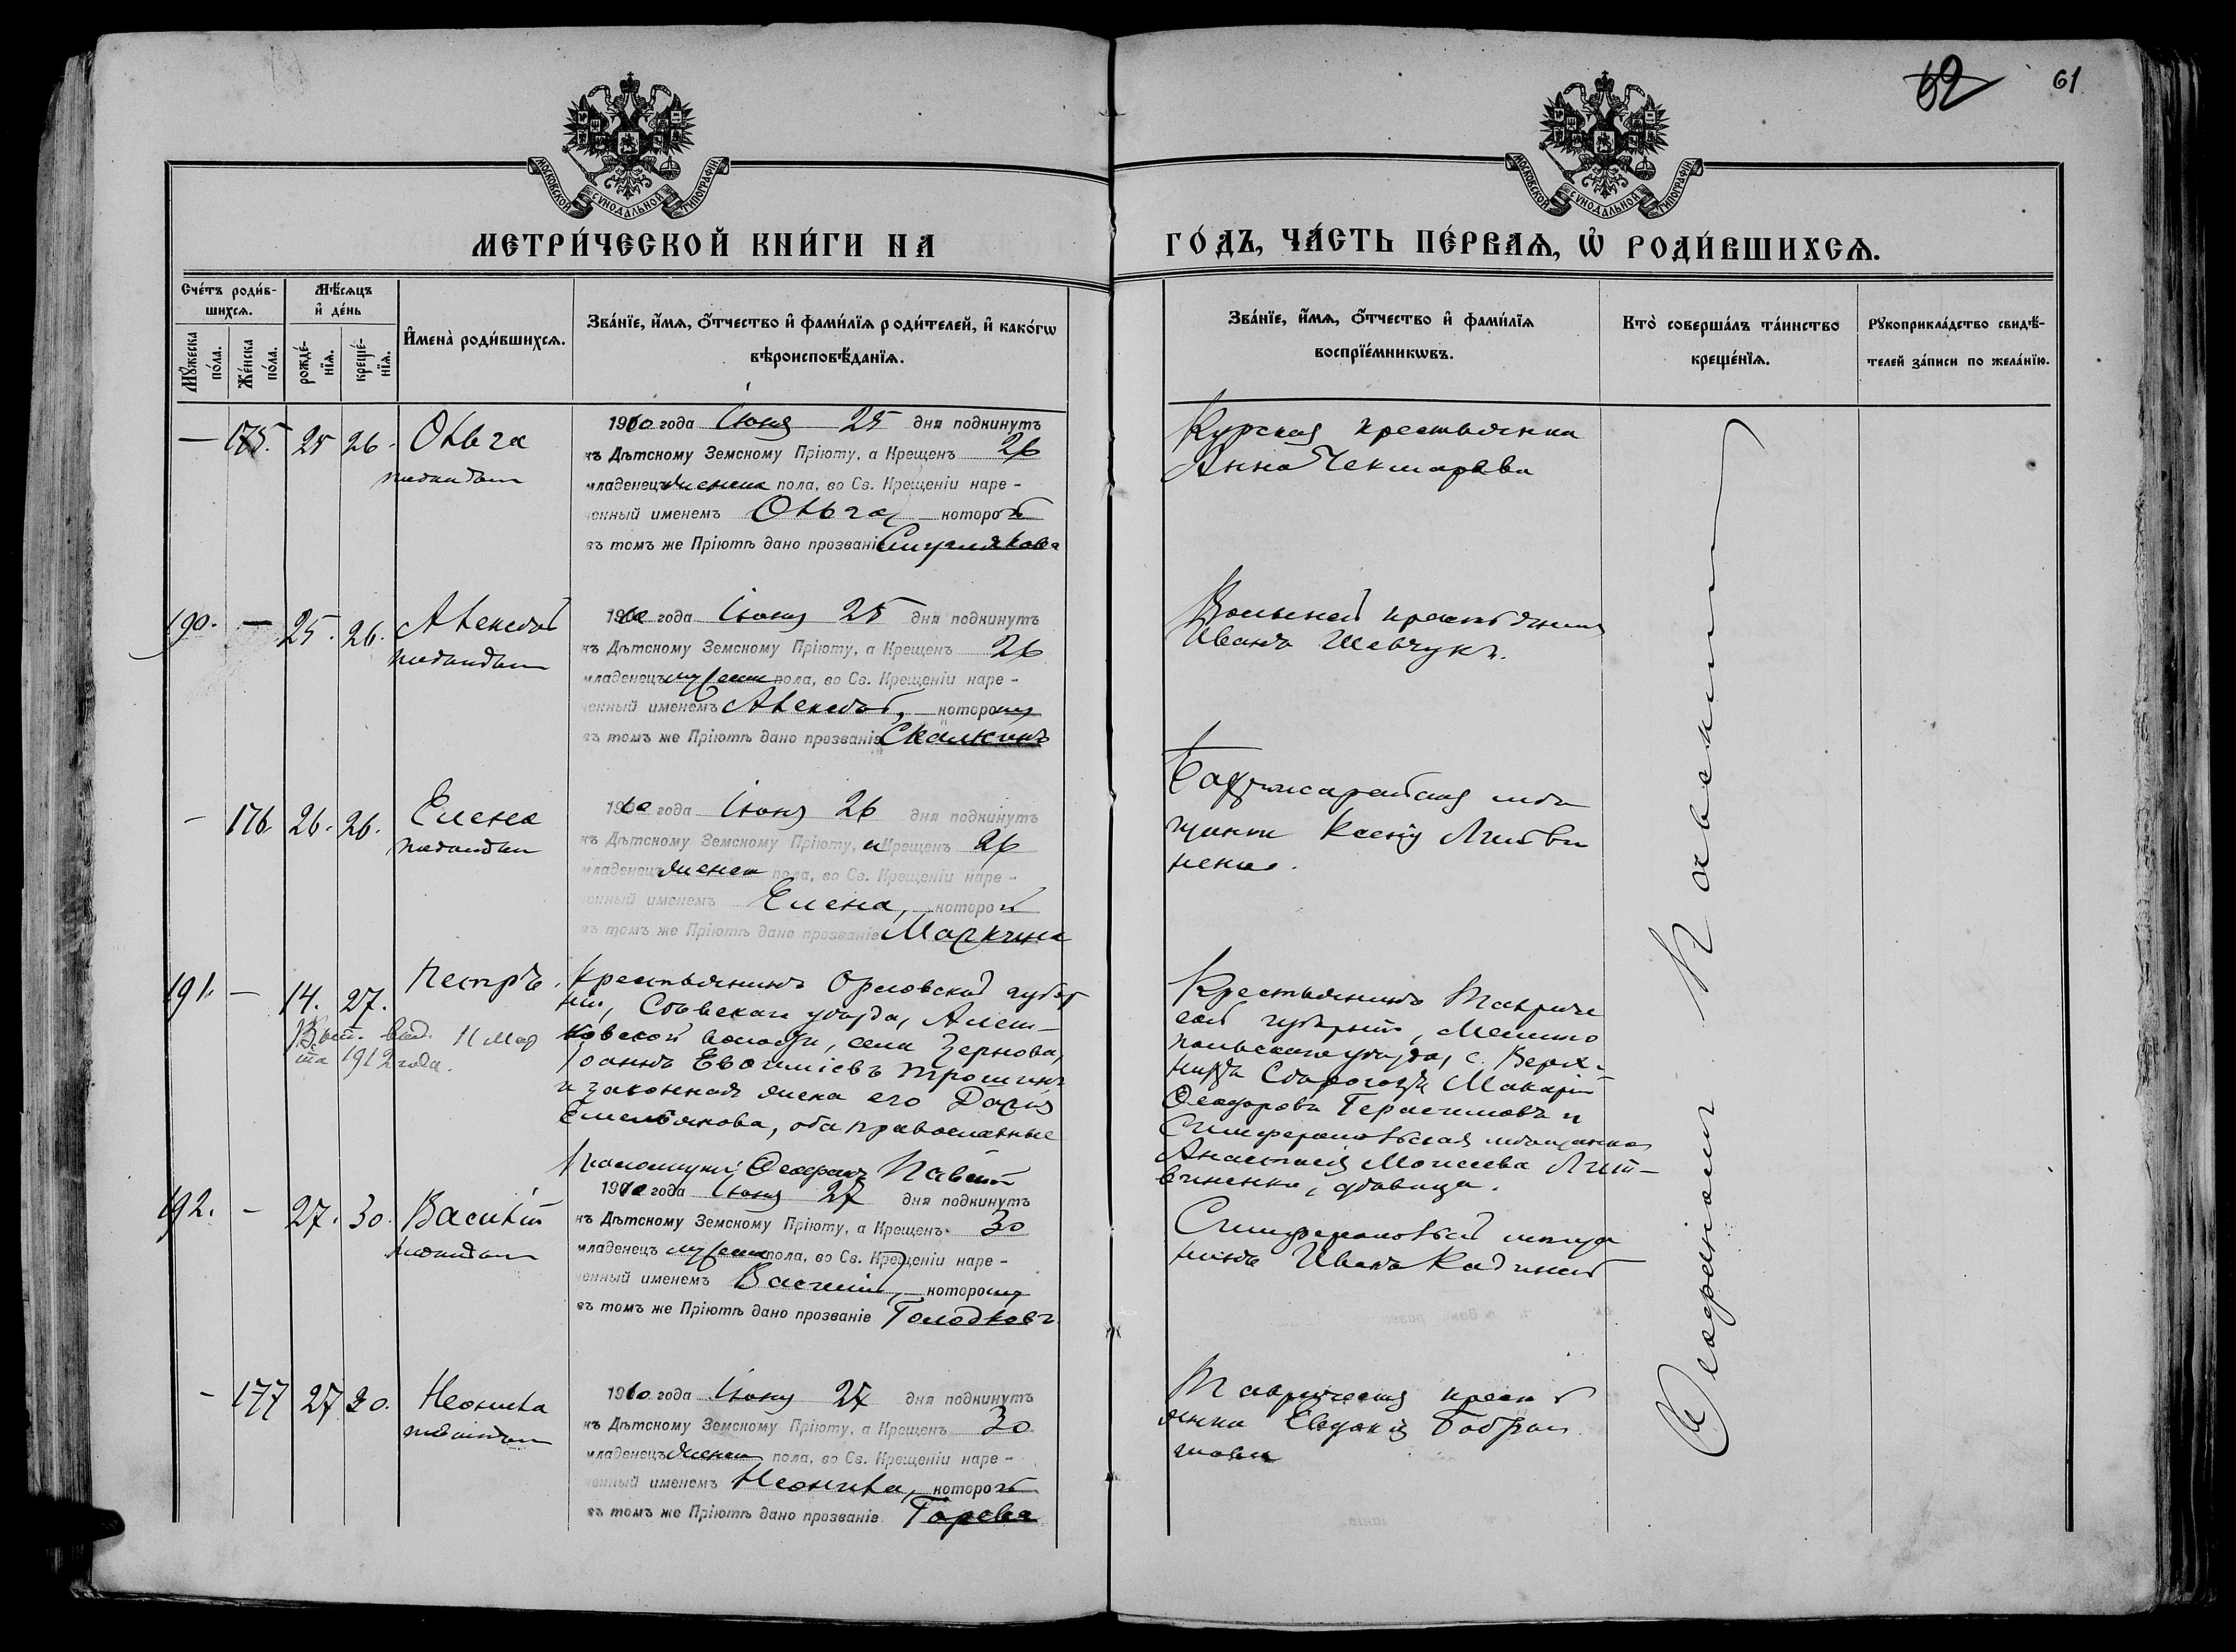 62 61
МОСКОВСКОЙ СУНОДАЛЬНОЙ ТИПОГРАФІИ
МОСКОВСКОЙ СУНОДАЛЬНОЙ ТИПОГРАФІИ
МЕТРИ́ЧЕСКОЙ КНИ́ГИ НА
ГО́ДЪ, ЧА́СТЬ ПЕ́РВАѦ, Ѽ РОДИ́ВШИХСѦ.
Сче́тъ роди́в-
шихсѧ.
Мꙋ́жеска по́ла.
Же́нска по́ла.
Мѣ́сѧцъ
и҆ де́нь
рожде́-
нїѧ.
креще́-
нїѧ.
И҆мена̀ роди́вшихсѧ.
Зва́нїе, и҆́мѧ, ѻ҆́тчество и҆ фами́лїѧ роди́телей, и҆ како́гѡ
вѣроисповѣ́данїѧ.
Зва́нїе, и҆́мѧ, ѻ҆́тчество и҆ фами́лїѧ
воспрїе́мникѡвъ.
Кто̀ соверша́лъ та́инство
креще́нїѧ.
Рꙋкоприкла́дство свидѣ́-
телей за́писи по жела́нїю.
— 175. 25 26. Ольга
подкидыш
1910 года Іюня 25 дня подкинутъ
къ Дѣтскому Земскому Пріюту, а Крещенъ 26
младенецъ женска пола, во Св. Крещеніи наре-
ченный именемъ Ольга, которой
въ томъ же Пріютѣ дано прозваніе
Курская крестьянка
Анна Чекмарева
190. — 25. 26. Алексѣй
подкидыш
1910 года Іюня 25 дня подкинутъ
къ Дѣтскому Земскому Пріюту, а Крещенъ 26
младенецъ мужеска пола, во Св. Крещеніи наре-
ченный именемъ Алексѣй, которому
въ томъ же Пріютѣ дано прозваніе Скалкинъ
Волынскій крестьянинъ
Иванъ Шевчукъ.
- 176. 26. 26. Елена
подкидыш
1910 года Іюня 26 дня подкинутъ
къ Дѣтскому Земскому Пріюту, а Крещенъ 26
младенецъ женска пола, во Св. Крещеніи наре-
ченный именемъ Елена, которой
въ томъ же Пріютѣ дано прозваніе Маркина
Бахчисарайская мѣ
щанка Ксенія Литви
ненко.
191. — 14. 27. Петръ.
Вып. выд. 11 мар
та 1912 года.
Крестьянинъ Орловской губер
ніи, Сѣвскаго уѣзда, Алеш-
ковской волости, села Зернова,
Іоаннъ Евѳиміевъ Трошинъ
и законная жена его Дарія
Емельянова, оба православные
Крестьянинъ Тавриче
ской губерніи, Мелито
польскаго уѣзда, с. Верх-
Макарій
Ѳеодоровъ Герасимовъ и
Симферопольская мѣщанка
Анастасія Моисеева Лит-
виненко, вдовица.
Ѳеофанъ Павскій
192. - 27. 30. Василій
подкидыш
1910 года Іюня 27 дня подкинутъ
къ Дѣтскому Земскому Пріюту, а Крещенъ 30
младенецъ мужеска пола, во Св. Крещеніи наре-
ченный именемъ Василій, которому
въ томъ же Пріютѣ дано прозваніе Голодковъ
Симферопольскій мѣща
нинъ Иванъ
- 177 27 30. Неонила
подкидыш
1910 года Іюня 27 дня подкинутъ
къ Дѣтскому Земскому Пріюту, а Крещенъ 30
младенецъ женска пола, во Св. Крещеніи наре-
ченный именемъ Неонила, которой
въ томъ же Пріютѣ дано прозваніе Горева
Таврическая кресть
янка Евдокія